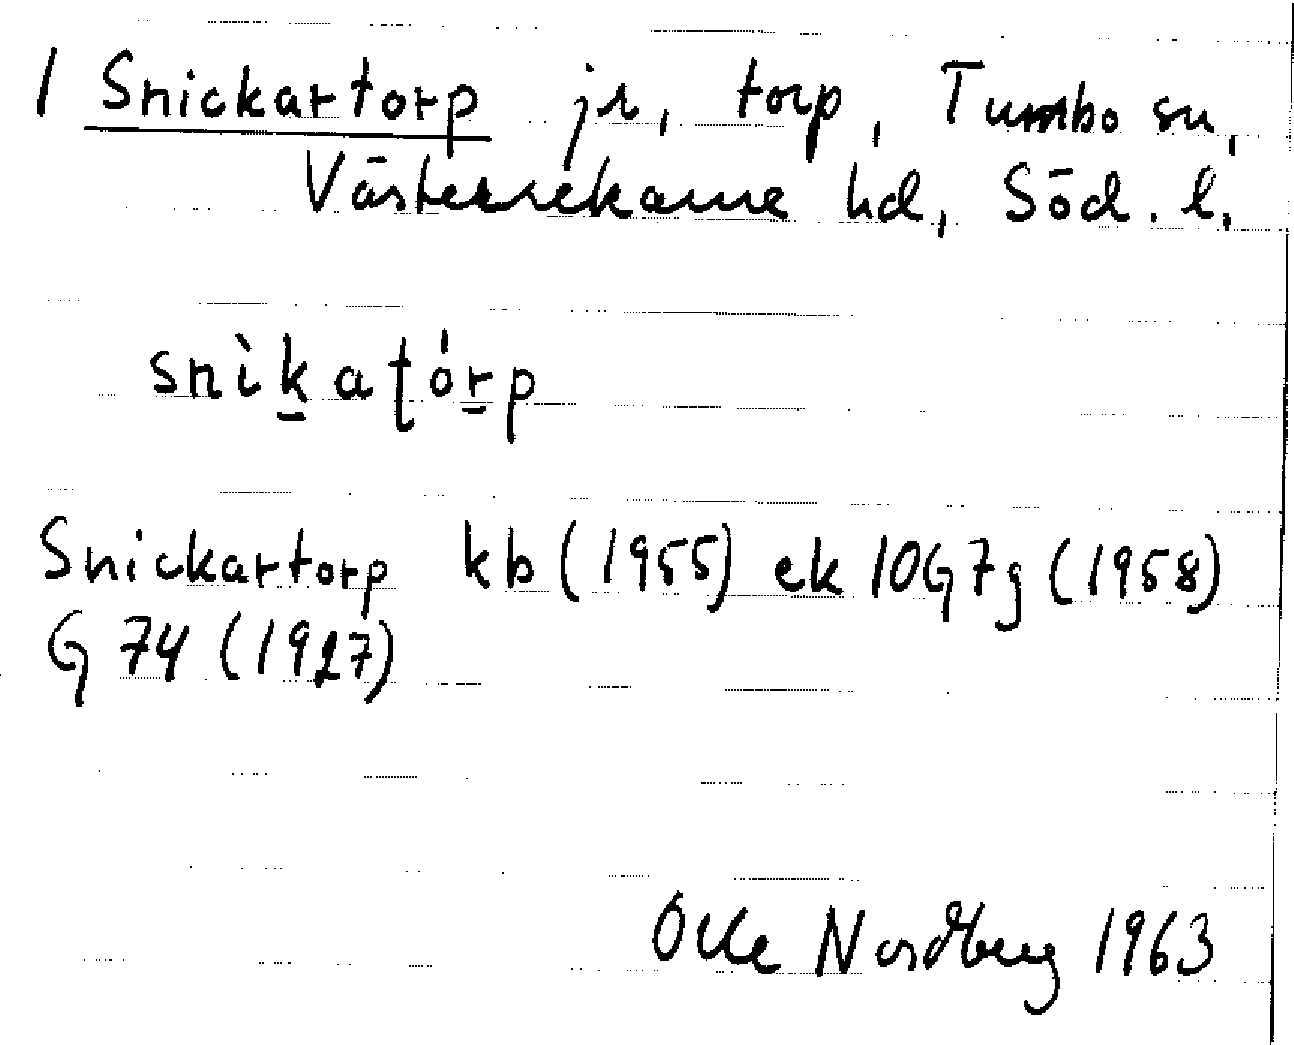 1 Snickartorp jr, torp, Tumbo sn,
Västerrekarne hd, Söd. l.
snìka̱ʈórp
Snickartorp kb (1955) ek 10G7g (1958)
G 74 (1927)
Olle Nordberg 1963